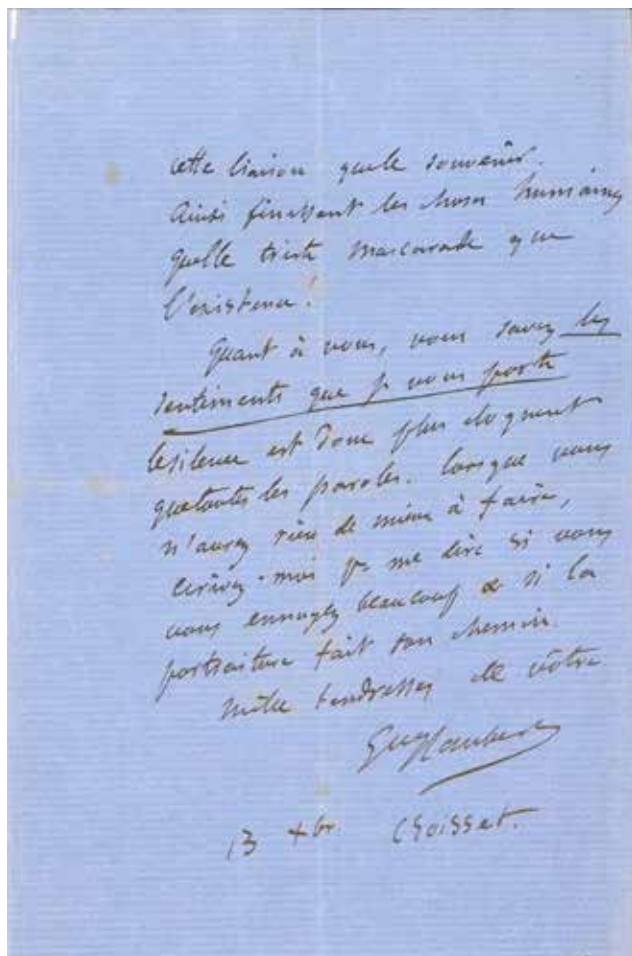 cette liaison que le souvenir.
Ainsi finissent les choses humaines
quelle triste mascarade que
l'existence !
Quant à vous, vous savez les
sentiments que je vous porte
le silence est donc plus éloquent
que toutes les paroles. Lorsque vous
n'aurez rien de mieux à faire,
écrivez-moi pr me dire si vous
vous ennuyez beaucoup & si la
portraiture fait son chemin.
Mille tendresses de vôtre
Gve Flaubert
13 Xbr. Croisset.